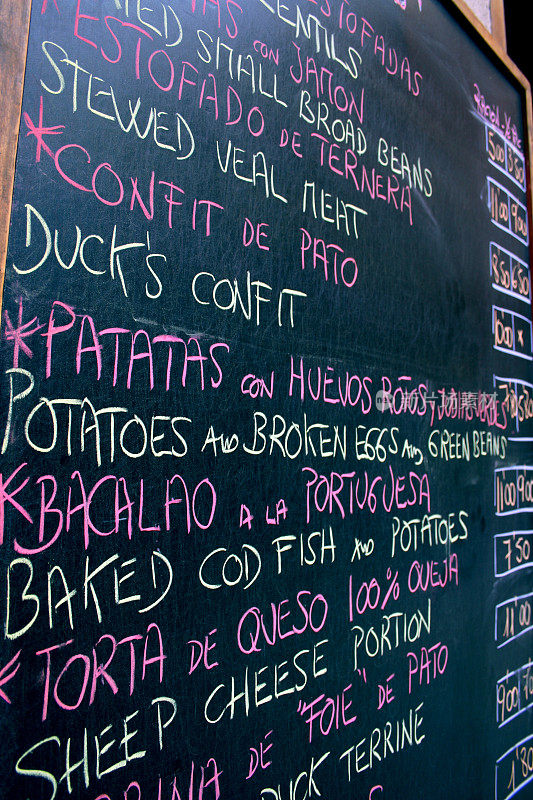 ESTOFADAS
LENTILS
CON JAMÓN
SMALL BROAD BEANS
ESTOFADO DE TERNERA
STEWED VEAL MEAT
* CONFIT DE PATO
DUCK'S CONFIT
* PATATAS CON HUEVOS ROTOS Y JUDIAS VERDES
POTATOES AND BROKEN EGGS AND GREEN BEANS
* BACALAO A LA PORTUGUESA
BAKED COD FISH AND POTATOES
* TORTA DE QUESO 100% OVEJA
SHEEP CHEESE PORTION
DE "FOIE" DE PATO
DUCK TERRINE
500 350
1100 900
850 650
1100 900
7'50
11'00
iStock